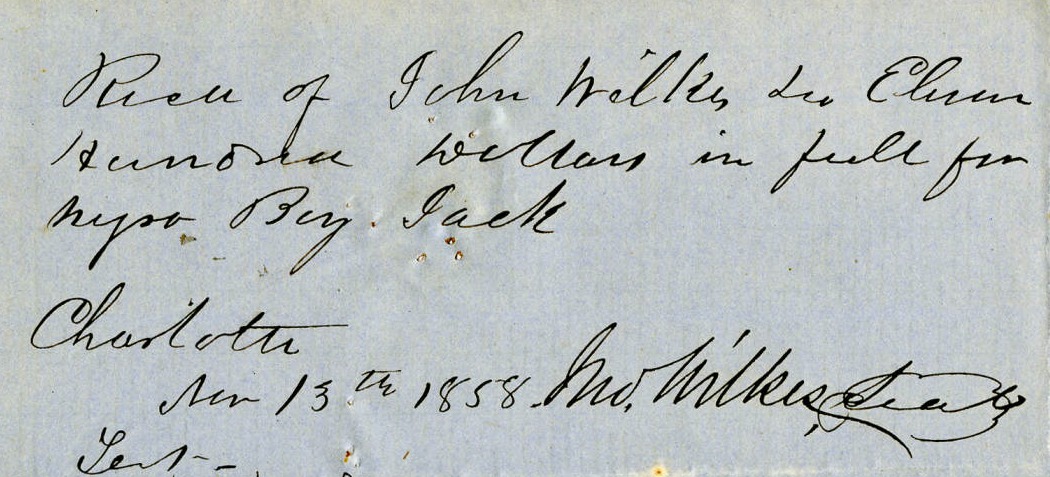 Recd of John Wilkes Eleven
Hundred Dollars in full for
negro Boy Jack
Charlotte
Nov 13th 1858. Jno. Wilkes, Seal
Test -